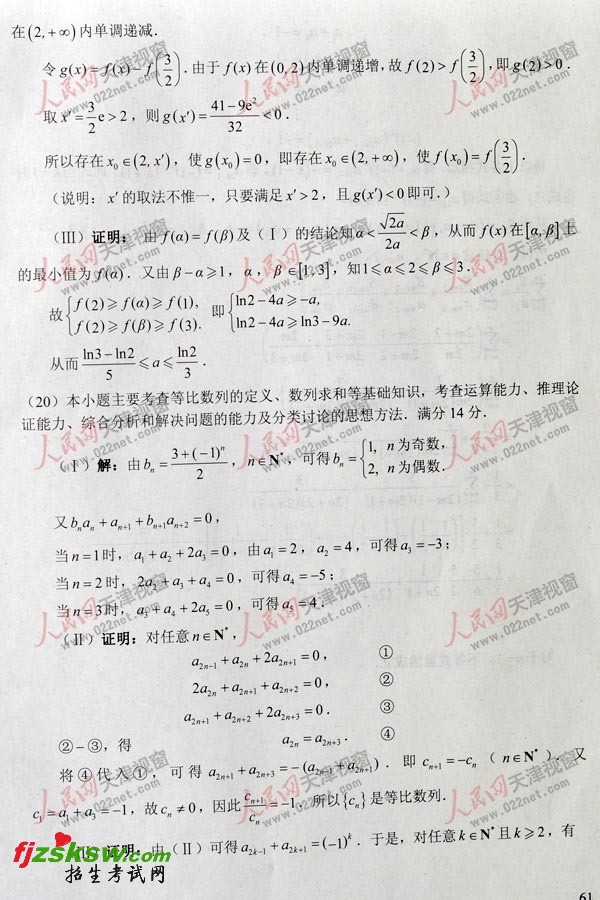 在(2,+∞)内单调递减.
令g(x)=f(x)-f(3/2).由于f(x)在(0,2)内单调递增,故f(2)>f(3/2),即g(2)>0.
取x'=3/2e>2,则g(x')=(41-9e²)/32<0.
所以存在x₀∈(2,x'),使g(x₀)=0,即存在x₀∈(2,+∞),使f(x₀)=f(3/2).
(说明:x'的取法不惟一,只要满足x'>2,且g(x')<0即可.)
(Ⅲ)证明:由f(α)=f(β)及(Ⅰ)的结论知α<√(2a)/2a<β,从而f(x)在[α,β]上
的最小值为f(α).又由β-α≥1,α,β∈[1,3],知1≤α≤2≤β≤3.
故{f(2)≥f(α)≥f(1), f(2)≥f(β)≥f(3). 即{ln2-4a≥-a, ln2-4a≥ln3-9a.
从而(ln3-ln2)/5≤a≤ln2/3.
(20)本小题主要考查等比数列的定义、数列求和等基础知识,考查运算能力、推理论
证能力、综合分析和解决问题的能力及分类讨论的思想方法.满分14分.
(Ⅰ)解:由bₙ=(3+(-1)ⁿ)/2,n∈N*,可得bₙ={1, n为奇数, 2, n为偶数.
又bₙaₙ+aₙ₊₁+bₙ₊₁aₙ₊₂=0,
当n=1时,a₁+a₂+2a₃=0,由a₁=2,a₂=4,可得a₃=-3;
当n=2时,2a₂+a₃+a₄=0,可得a₄=-5;
当n=3时,a₃+a₄+2a₅=0,可得a₅=4.
(Ⅱ)证明:对任意n∈N*,
a₂ₙ₋₁+a₂ₙ+2a₂ₙ₊₁=0, ①
2a₂ₙ+a₂ₙ₊₁+a₂ₙ₊₂=0, ②
a₂ₙ₊₁+a₂ₙ₊₂+2a₂ₙ₊₃=0. ③
②-③,得 a₂ₙ=a₂ₙ₊₃. ④
将④代入①,可得a₂ₙ₊₁+a₂ₙ₊₃=-(a₂ₙ₋₁+a₂ₙ₊₁).即cₙ₊₁=-cₙ(n∈N*).又
c₁=a₁+a₃=-1,故cₙ≠0,因此cₙ₊₁/cₙ=-1,所以{cₙ}是等比数列.
(Ⅲ)证明:由(Ⅱ)可得a₂ₖ₋₁+a₂ₖ₊₁=(-1)ᵏ.于是,对任意k∈N*且k≥2,有
61
人民网天津视窗
www.022net.com
fjzsksw.com
招生考试网